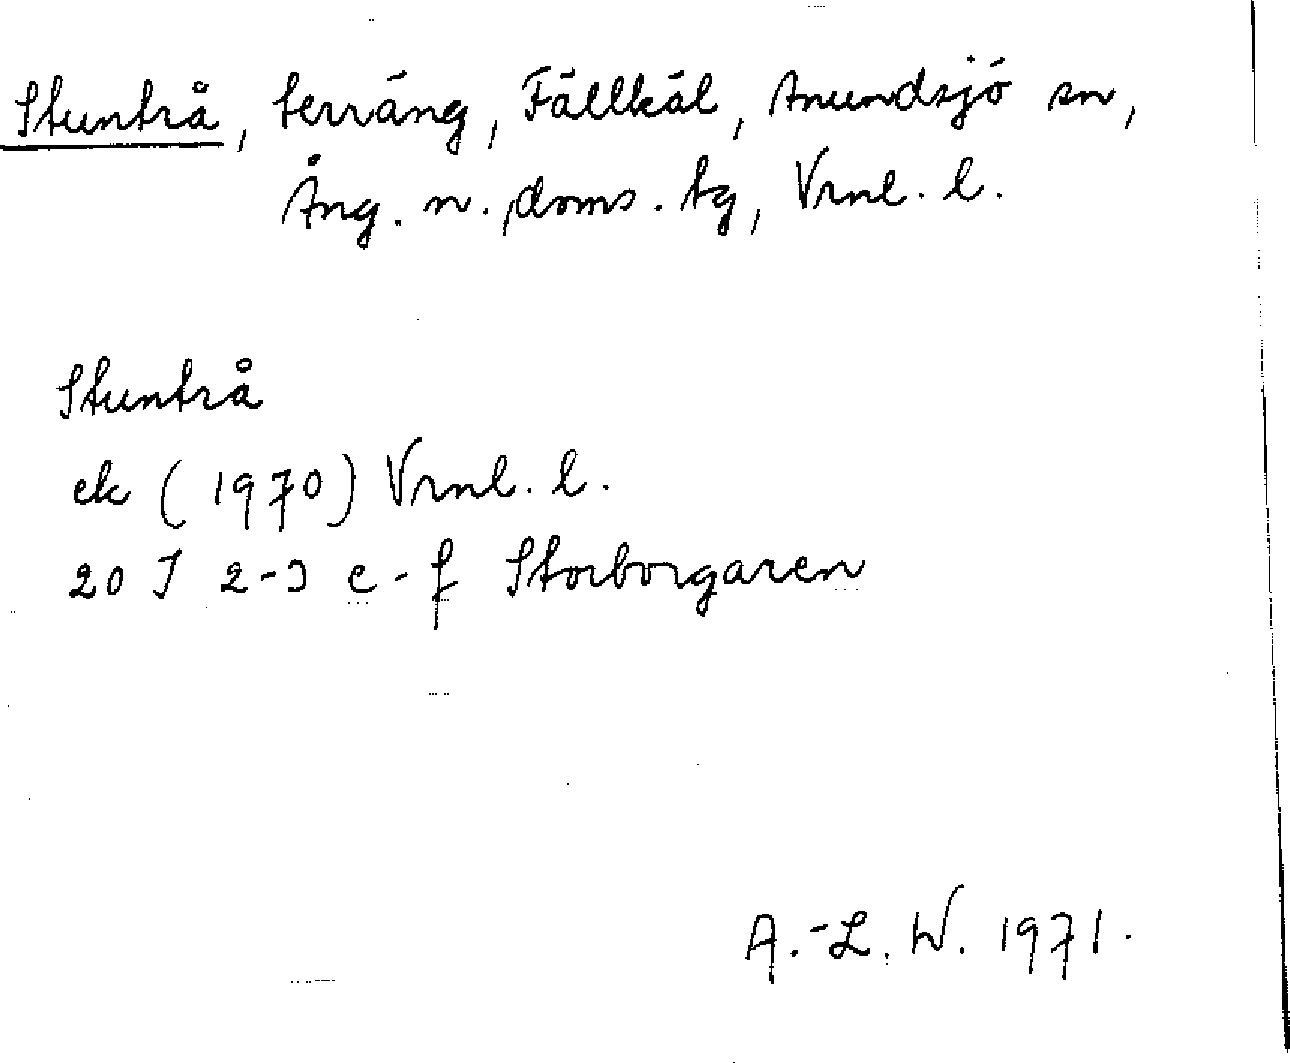 Stuntrå, terräng, Fällkäl, Anundsjö sn,
Ång. n., doms. tg, Vrnl. l.
Stuntrå
ek (1970) Vrnl. l.
20 I 2-3 e-f Storborgaren
A.-L. W. 1971.